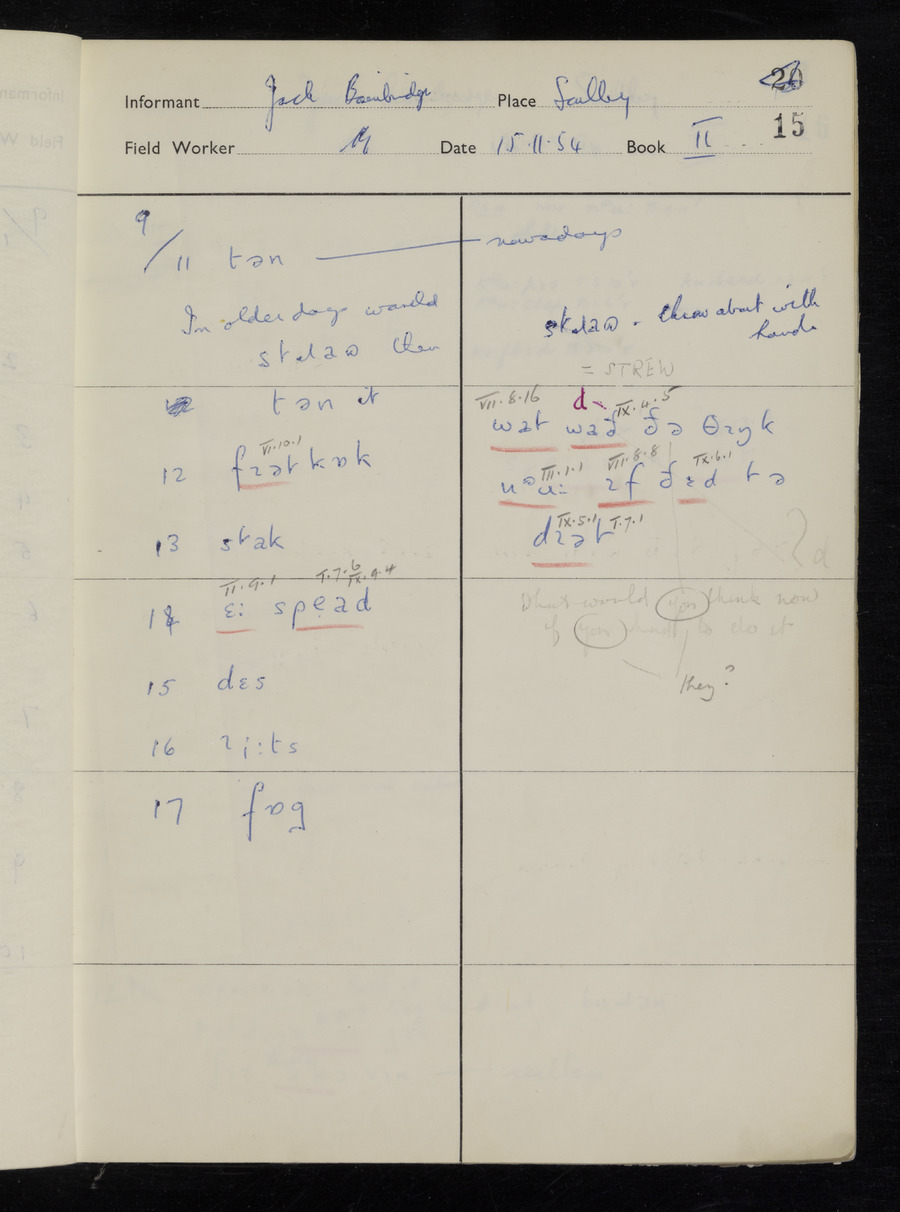 Informant Jack Bainbridge Place Sawley
20
15
Field Worker Date 15.11.54 Book II
9/11 tən — nowadays
In older days would
stɹaɷ then
stɹaɷ - throw about with
hands
= STREW
tən it
12 fɹət kɒk
VI.10.1
13 stak
II.9.1 I.7.6
IX.9.4
14 ɛ: spead
15 dɛs
16 ɹi:ts
17 fɒg
VII.8.16 d IX.4.5
wat wad ðə θɪŋk
III.1.1 VII.8.8 IX.6.1
ɪf ð ɛd tə
IX.5.1 I.7.1
dɪət
d
What would you think now
if you had to do it
they?